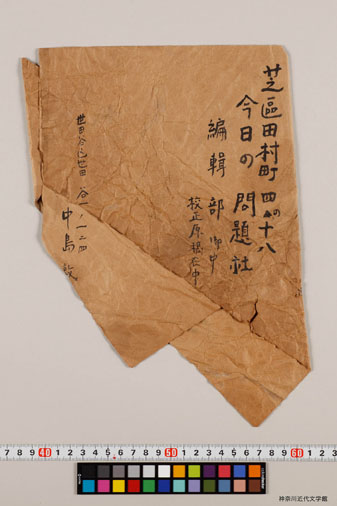 芝區田村町四の十八
今日の問題社
編輯部御中
校正原稿在中
世田谷、世田谷一ノ一二四
中島敦
7 8 9 40 1 2 3 4 5 6 7 8 9 50 1 2 3 4 5 6 7 8 9 60 1 2 3
神奈川近代文学館